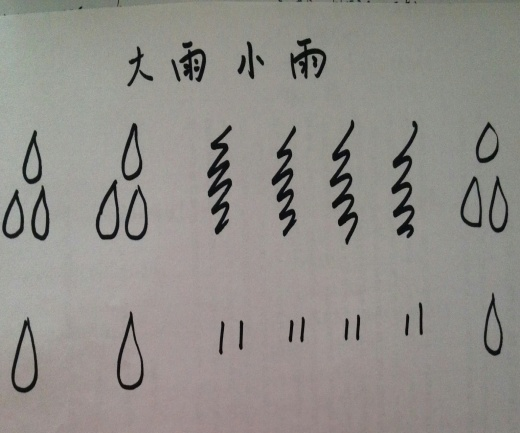 大雨小雨